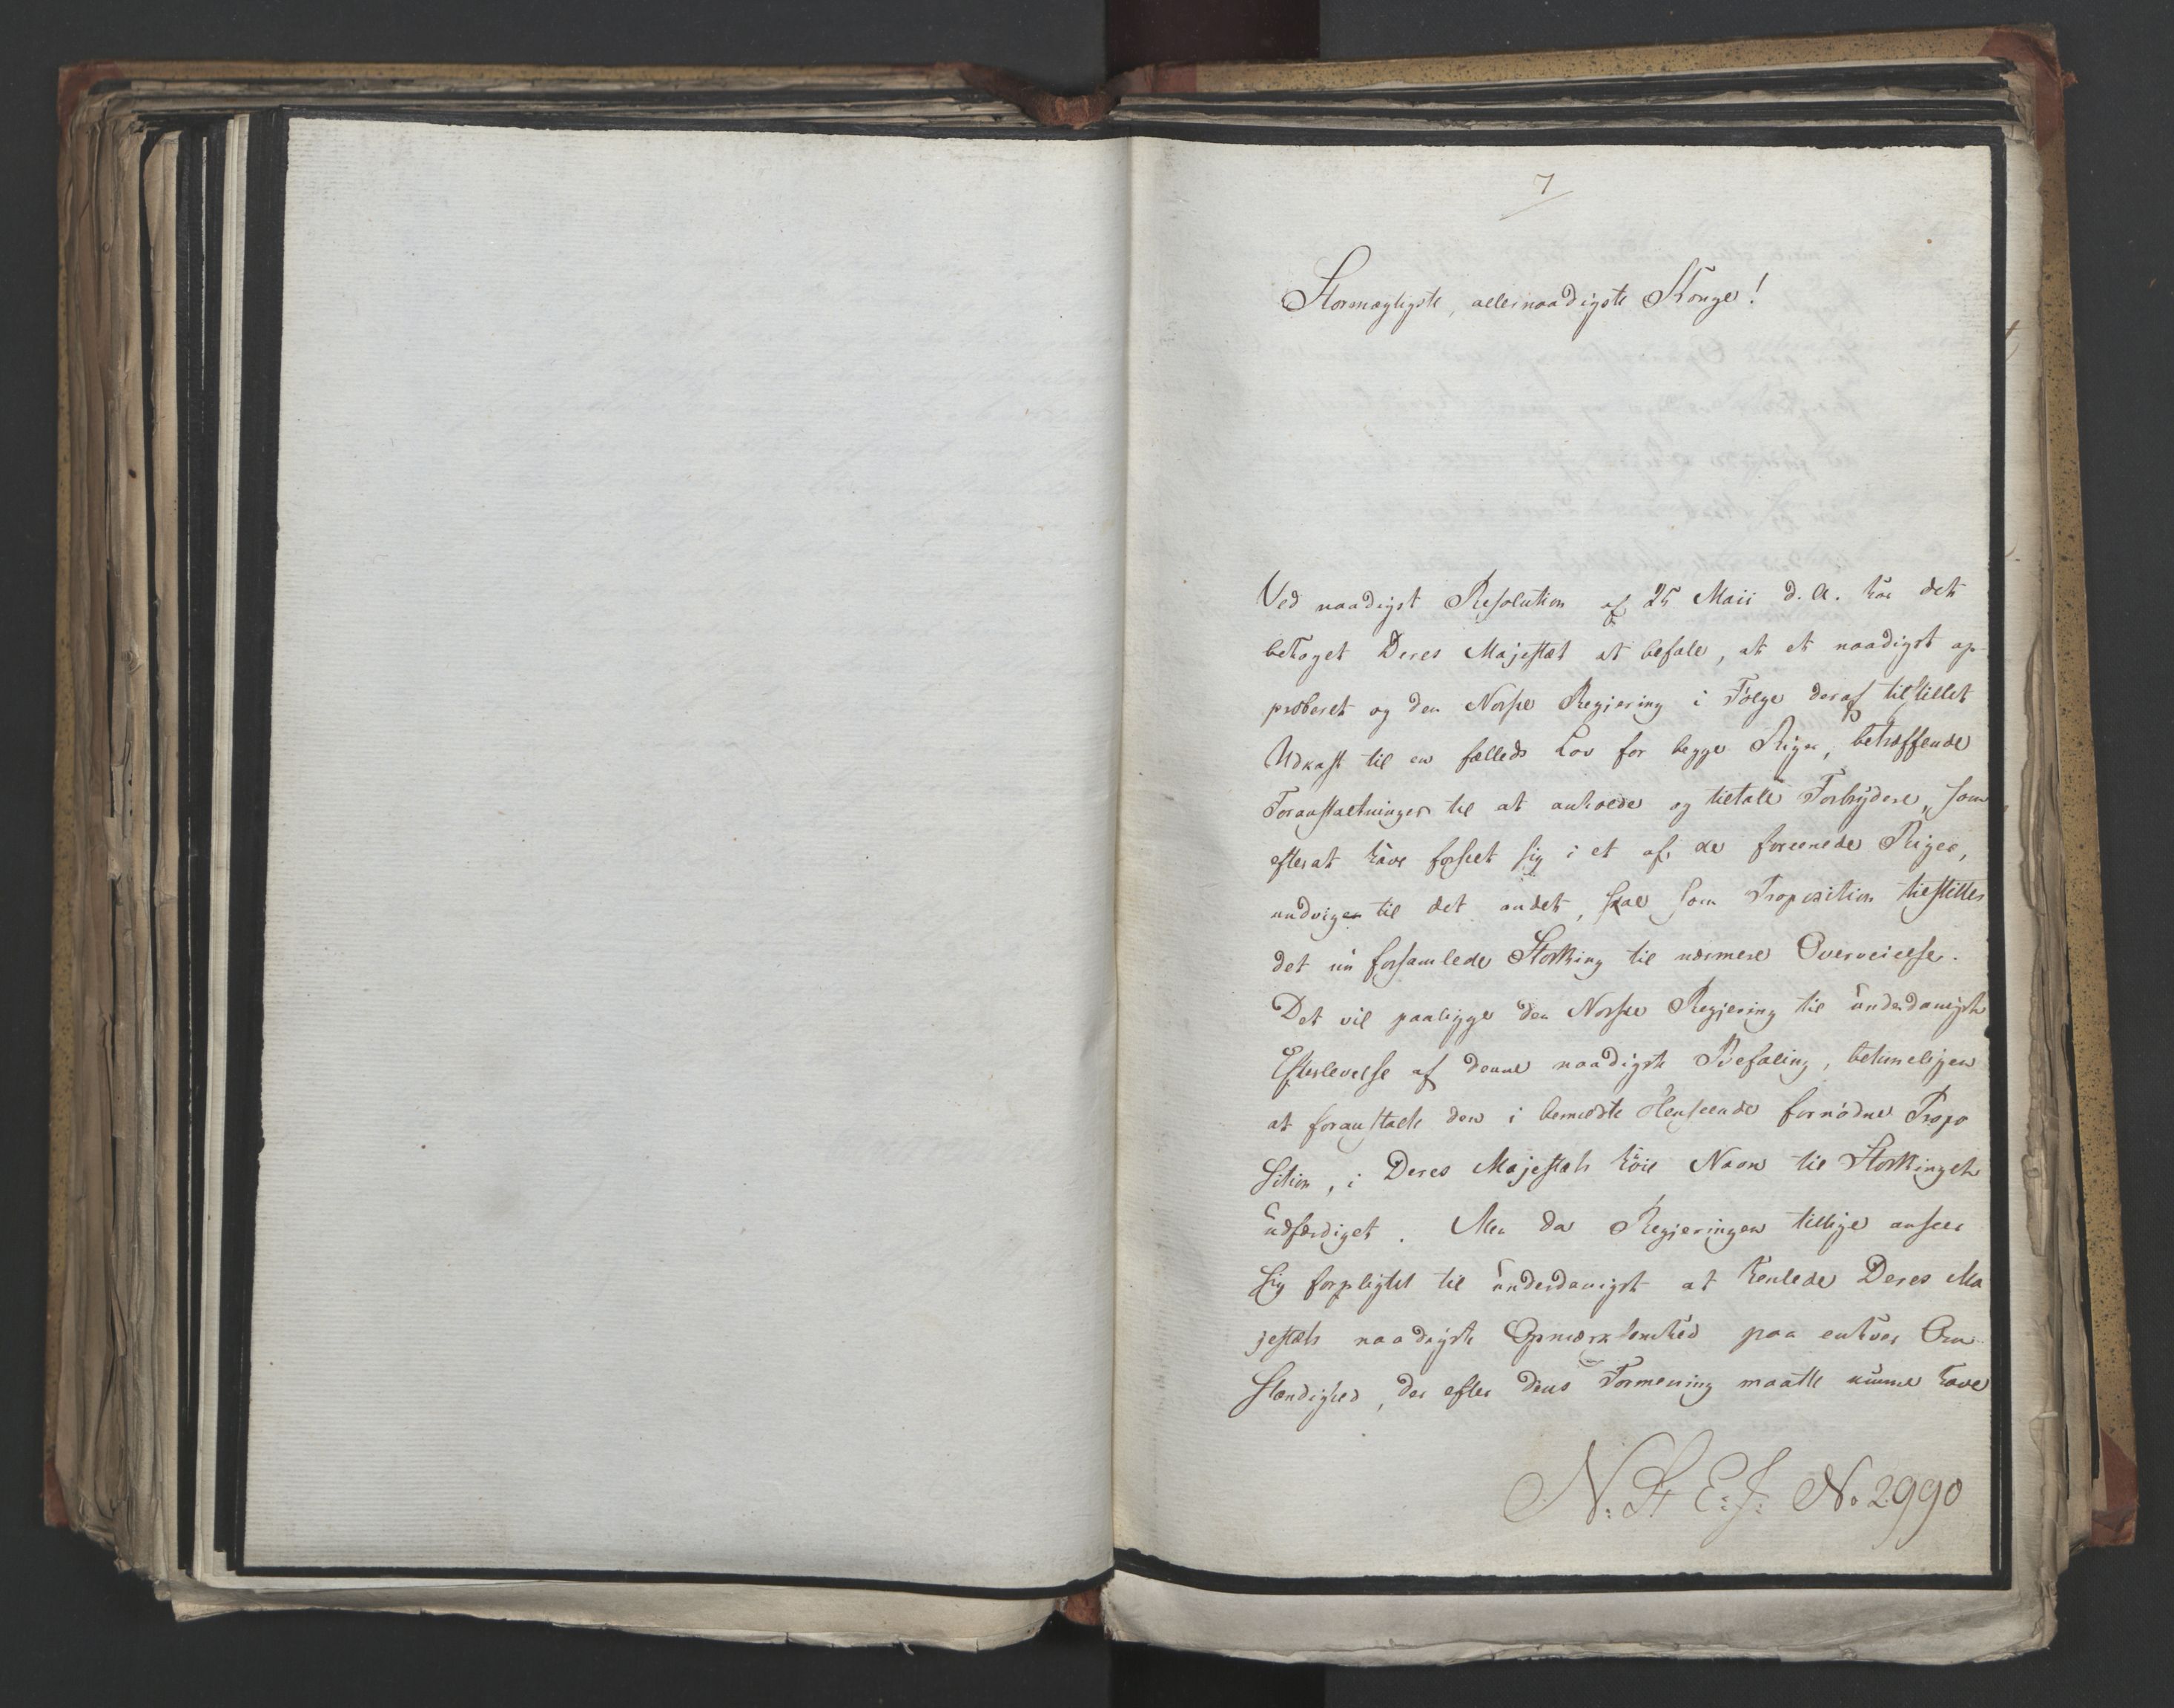 7
Stormægtigste, allernaadigste Konge!
Ved naadigst Resolution af 25 Maii d. A. har det
behaget Deres Majestæt at befale, at et naadigst ap-
proberet og den Norske Regjering i Følge deraf tilstillet
Udkast til en fælleds Lov for begge Riger, betræffende
Foranstaltninger til at anholde og tiltale Forbrydere, som
efterat have forseet sig i et af de forenede Riger,
undviger til det andet, skal som Proposition tilstilles
det nu forsamlede Storthing til nærmere Overveielse.
Det vil paaligge den Norske Regjering til underdanigste
Efterlevelse af denne naadigste Befaling, betimeligen
at foranstalte den i bemeldte Henseende fornødne Propo
sition, i Deres Majestæts høie Navn til Storthinget
udfærdiget. Men da Regjeringen tillige anseer
sig forpligtet til underdanigst at henlede Deres Ma
jestæts naadigste Opmærksomhed paa enhver Om-
stændighed, der efter dens Formening maatte kunne have
N: St E: J: No 2990